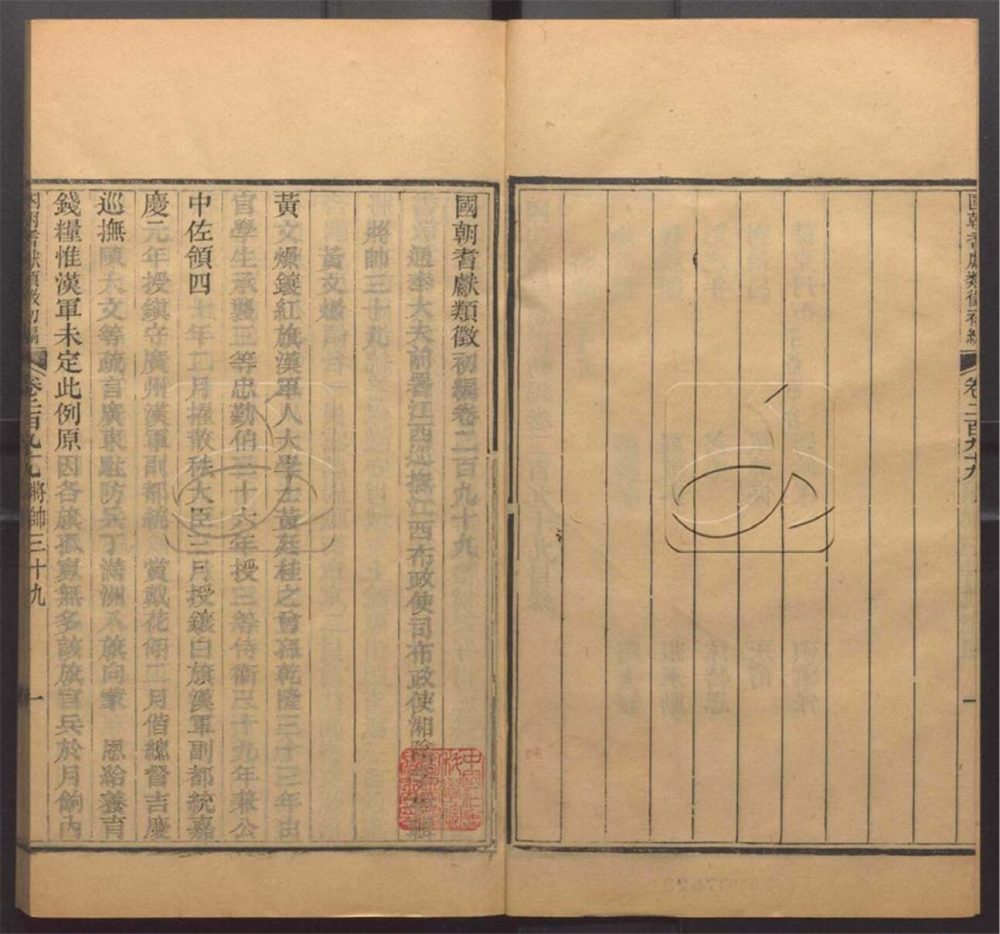 國朝耆獻類徵初編卷二百九十九
通奉大夫前署江西巡撫江西布政使司布政使湘陰李桓輯
將帥三十九
黃文爃
黃文爃鑲紅旗漢軍人大學士黃廷桂之曾孫乾隆三十三年由
官學生承襲三等忠勤伯三十六年授三等侍衛三十九年兼公
中佐領四年二月擢散秩大臣三月授鑲白旗漢軍副都統嘉
慶元年授鎮守廣州漢軍副都統賞戴花翎二月偕總督吉慶
巡撫陳大文等疏言廣東駐防兵丁滿洲八旗向蒙恩給養育
錢糧惟漢軍未定此例原因各旗孤寡無多該旗官兵於月餉內
卷二百九十九將帥三十九
一